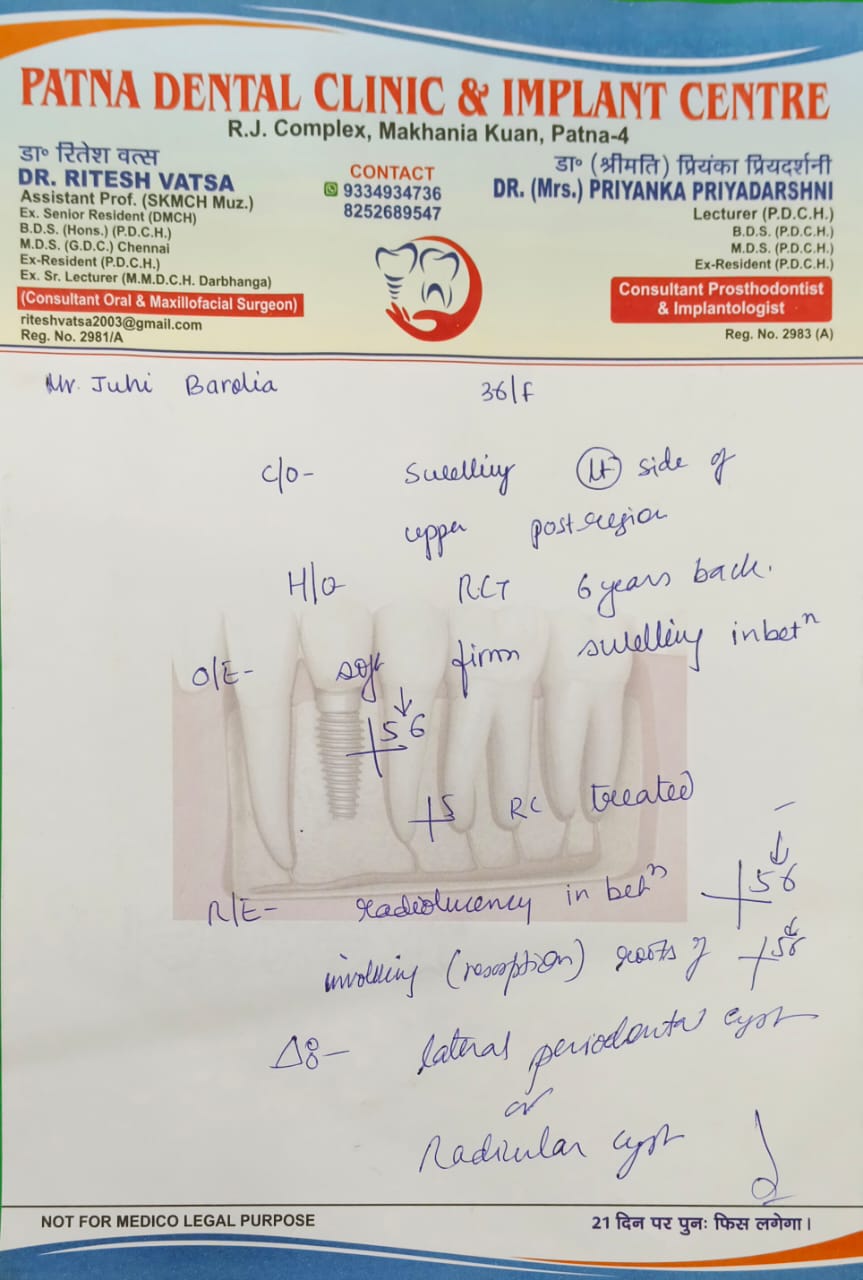 PATNA DENTAL CLINIC & IMPLANT CENTRE
R.J. Complex, Makhania Kuan, Patna-4
डा॰ रितेश वत्स
DR. RITESH VATSA
Assistant Prof. (SKMCH Muz.)
Ex. Senior Resident (DMCH)
B.D.S. (Hons.) (P.D.C.H.)
M.D.S. (G.D.C.) Chennai
Ex-Resident (P.D.C.H.)
Ex. Sr. Lecturer (M.M.D.C.H. Darbhanga)
(Consultant Oral & Maxillofacial Surgeon)
riteshvatsa2003@gmail.com
Reg. No. 2981/A
CONTACT
9334934736
8252689547
डा॰ (श्रीमति) प्रियंका प्रियदर्शनी
DR. (Mrs.) PRIYANKA PRIYADARSHNI
Lecturer (P.D.C.H.)
B.D.S. (P.D.C.H.)
M.D.S. (P.D.C.H.)
Ex-Resident (P.D.C.H.)
Consultant Prosthodontist
& Implantologist
Reg. No. 2983 (A)
Mr. Juhi 36/F
C/O- Swelling Lt side of
upper post region
H/O RCT 6 years back.
O/E- soft firm swelling in betn
5 6
5 RC treated
R/E- radiolucency in betn 5 6
involving (resorption) roots of 56
Δ:- lateral periodontal cyst
or
Radicular cyst
NOT FOR MEDICO LEGAL PURPOSE
21 दिन पर पुनः फिस लगेगा।